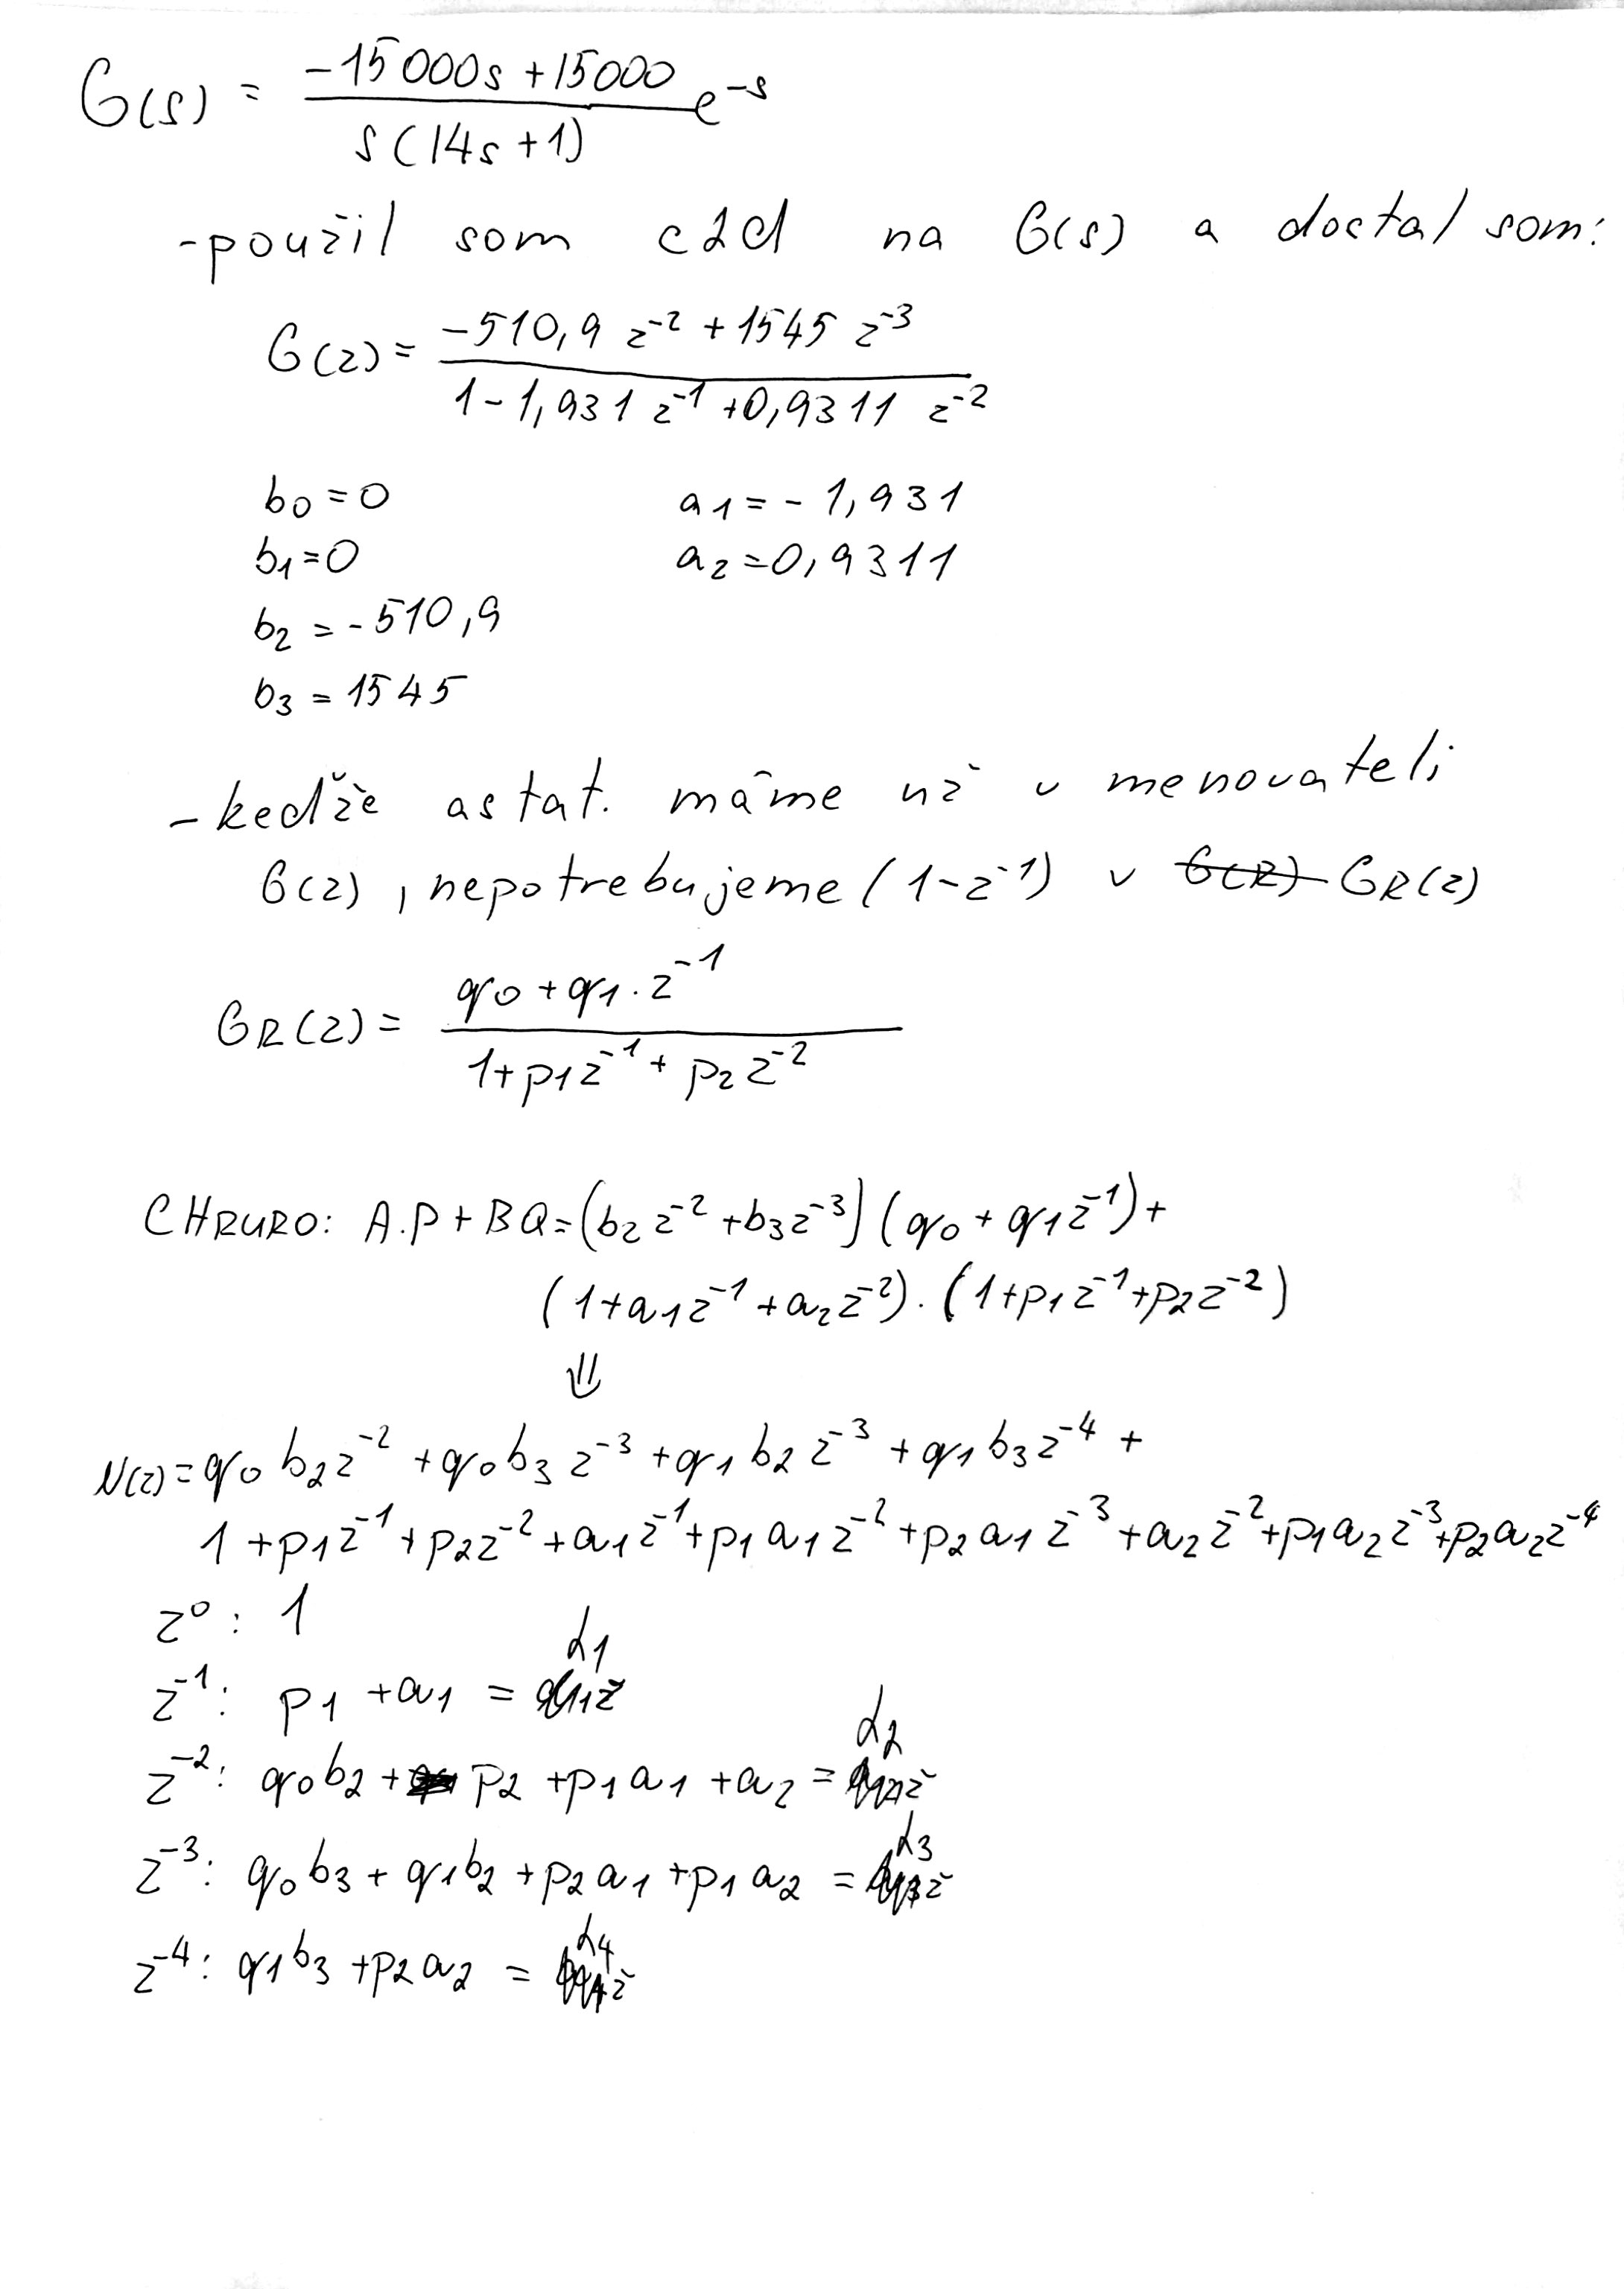 G(s) = (-15000s + 15000) / (s(14s+1)) e^-s
- použil som c2d na G(s) a dostal som:
G(z) = (-510,9 z^-2 + 1545 z^-3) / (1 - 1,931 z^-1 + 0,9311 z^-2)
b0 = 0 a1 = - 1,931
b1 = 0 a2 = 0,9311
b2 = - 510,9
b3 = 1545
- kedže astat. máme už v menovateli
G(z), nepotrebujeme (1 - z^-1) v G(R) GR(z)
GR(z) = (q0 + q1 . z^-1) / (1 + p1 z^-1 + p2 z^-2)
CHRURO: A.P + BQ = (b2 z^-2 + b3 z^-3) (q0 + q1 z^-1) +
(1 + a1 z^-1 + a2 z^-2) . (1 + p1 z^-1 + p2 z^-2)
⇓
N(z) = q0 b2 z^-2 + q0 b3 z^-3 + q1 b2 z^-3 + q1 b3 z^-4 +
1 + p1 z^-1 + p2 z^-2 + a1 z^-1 + p1 a1 z^-2 + p2 a1 z^-3 + a2 z^-2 + p1 a2 z^-3 + p2 a2 z^-4
z^0 : 1
z^-1 : p1 + a1 = α1
z^-2 : q0 b2 + p2 + p1 a1 + a2 = α2
z^-3 : q0 b3 + q1 b2 + p2 a1 + p1 a2 = α3
z^-4 : q1 b3 + p2 a2 = α4